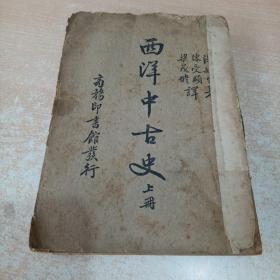 陳受頤
梁茂修 譯
西洋中古史 上冊
商務印書館發行